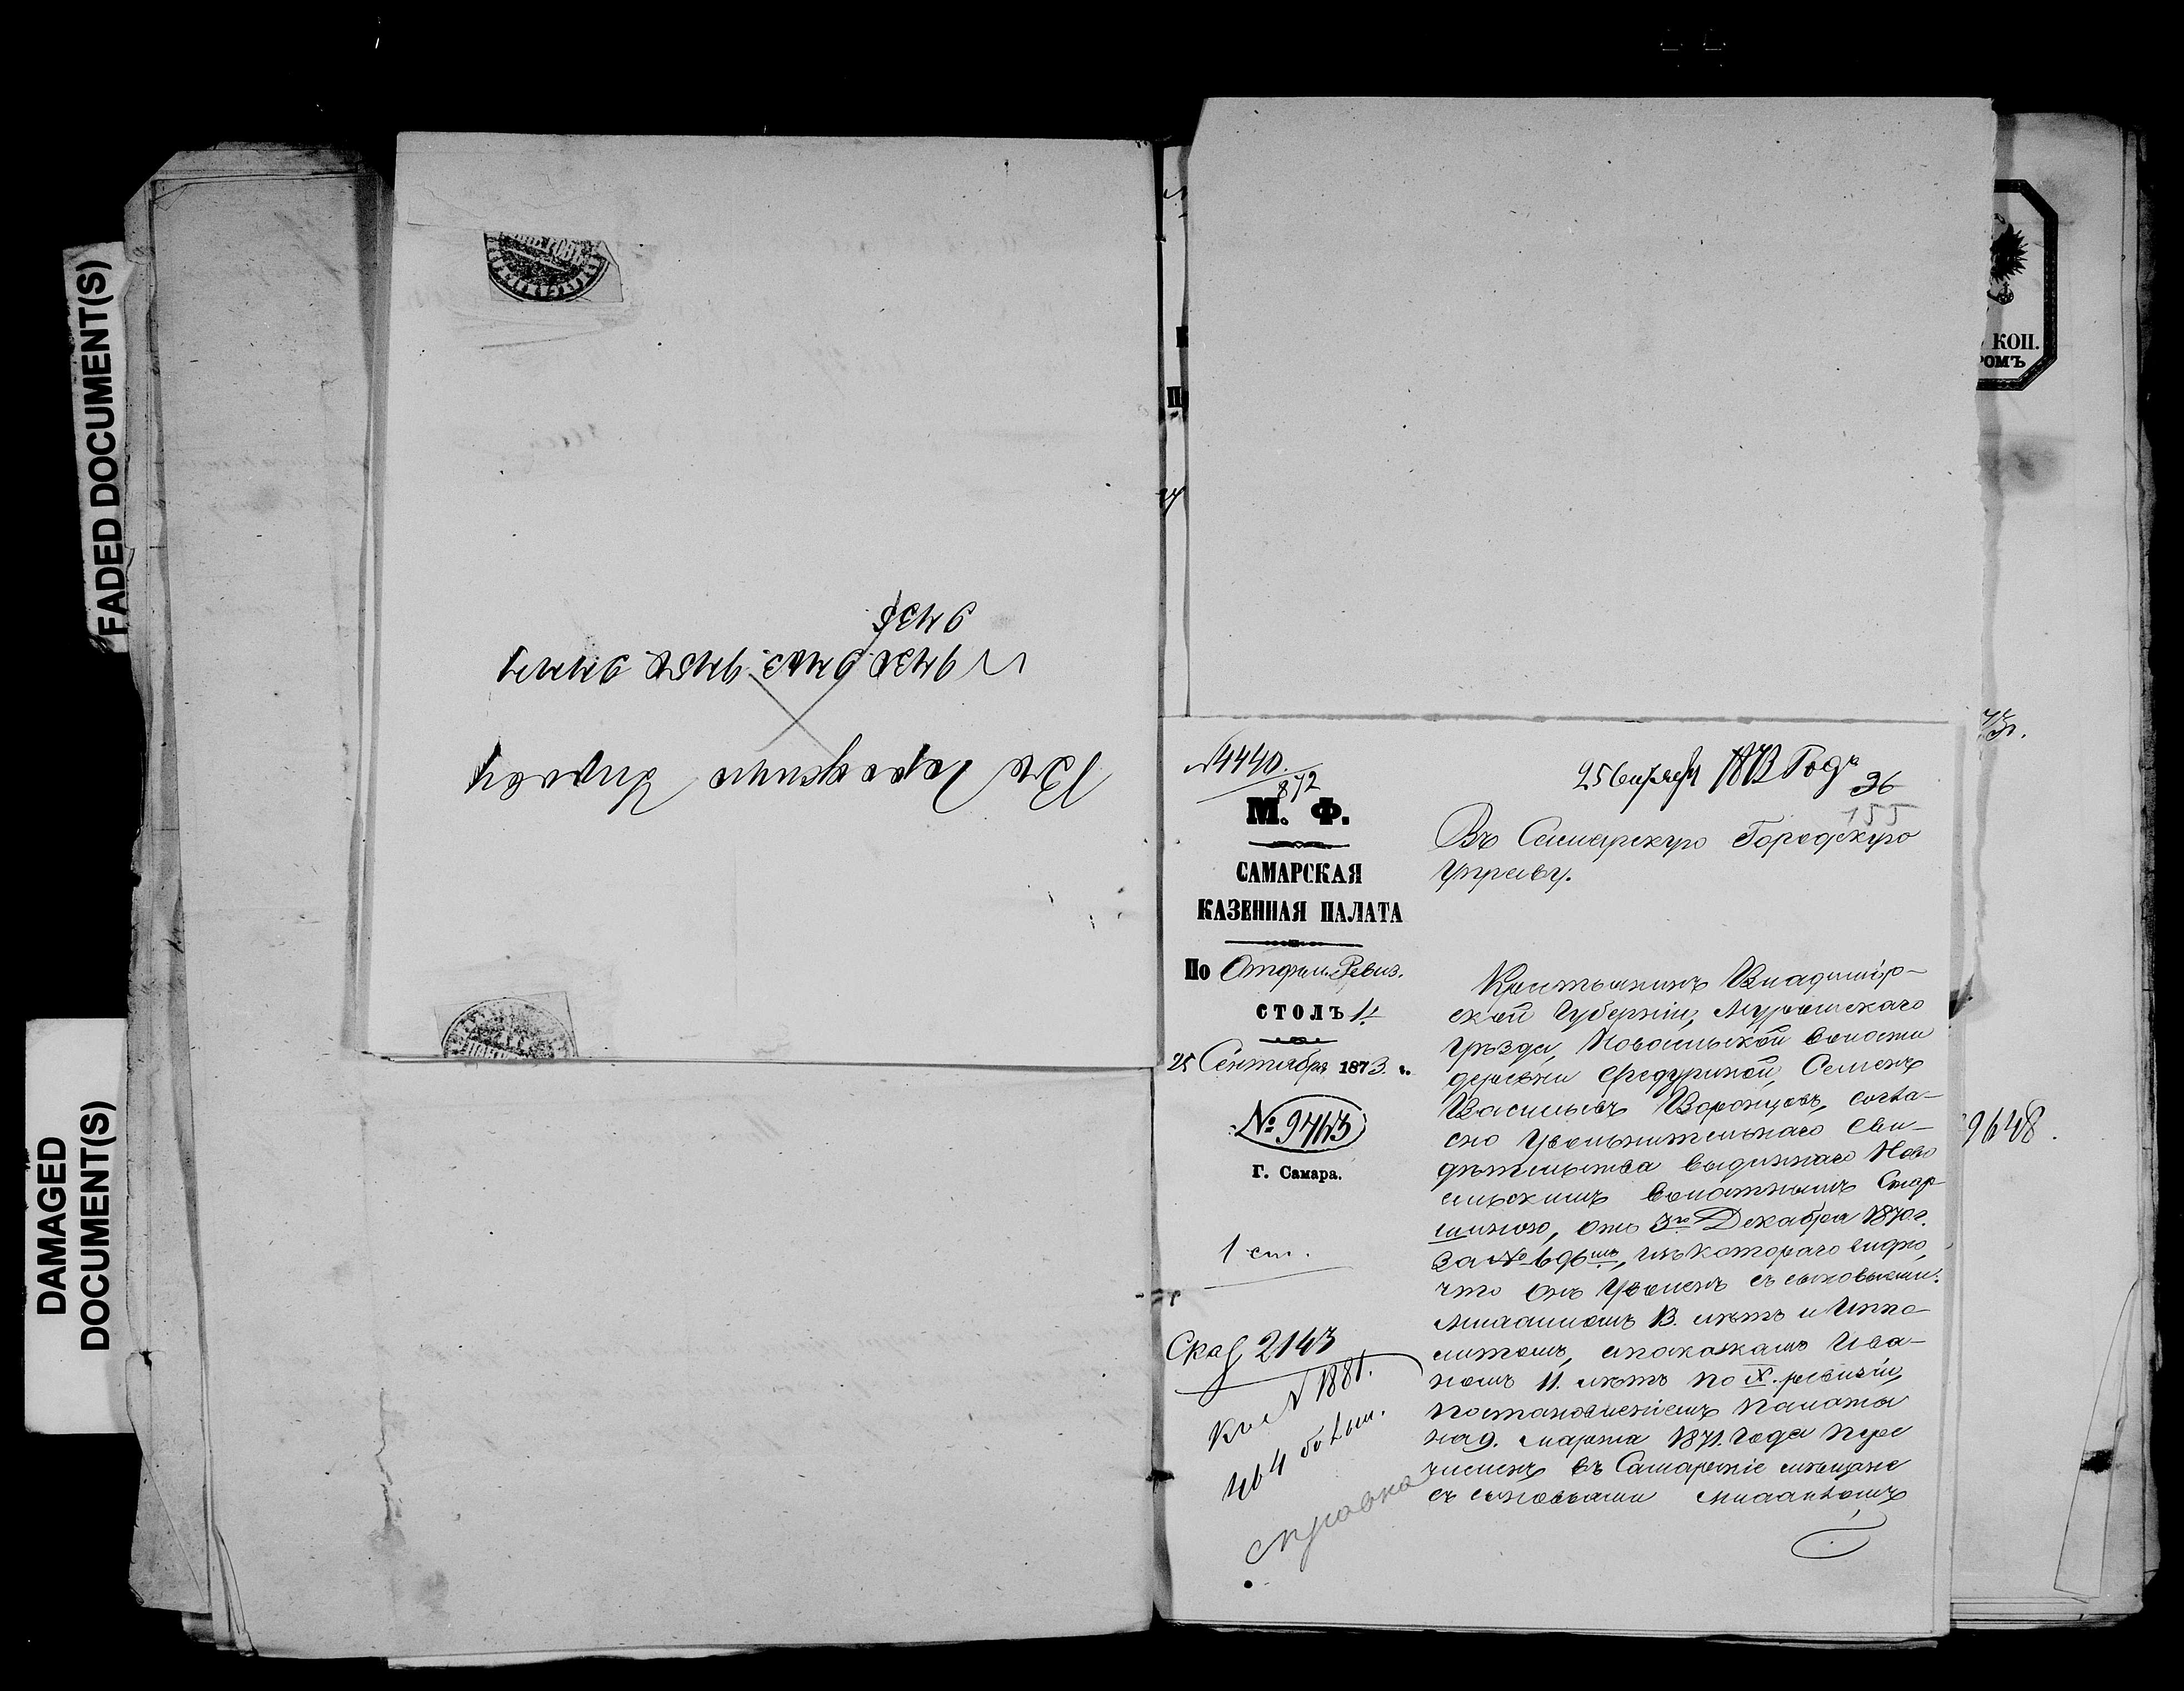 FADED DOCUMENT(S)
DAMAGED
DOCUMENT(S)
Въ Городскую Управу
9432 9443 9452 9444
9435
КОП.
РОМЪ
№4440.
872
М. Ф.
САМАРСКАЯ
КАЗЕННАЯ ПАЛАТА
По Отдѣл. Ревиз.
СТОЛЪ 1.
25 Сентября 1873. г.
№ 9443
Г. Самара.
1 ст.
Сказ 2143
№ 1881.
справка
1873 Года
36
155
Въ Самарскую Городскую
Управу.
Крестьянинъ Владимір-
ской Губерніи, Муромскаго
Уѣзда, Новосельской волости
деревни Семенъ
Васильевъ Воронцовъ, согла-
сно Увольнительнаго Сви-
дѣтельства выданнаго Ново
сельскимъ волостнымъ Стар-
шиною, отъ 3го Декабря 1870 г.
За № 696мъ, изъ котораго видно,
что онъ Уволенъ съ сыновьями:
13. лѣтъ и Иппо-
литомъ, Ива-
номъ 11. лѣтъ по X. ревизіи,
постановленіемъ Палаты
на 9. марта 1871. года пере
численъ въ Самарскіе мѣщане
съ сыновьями
9648.